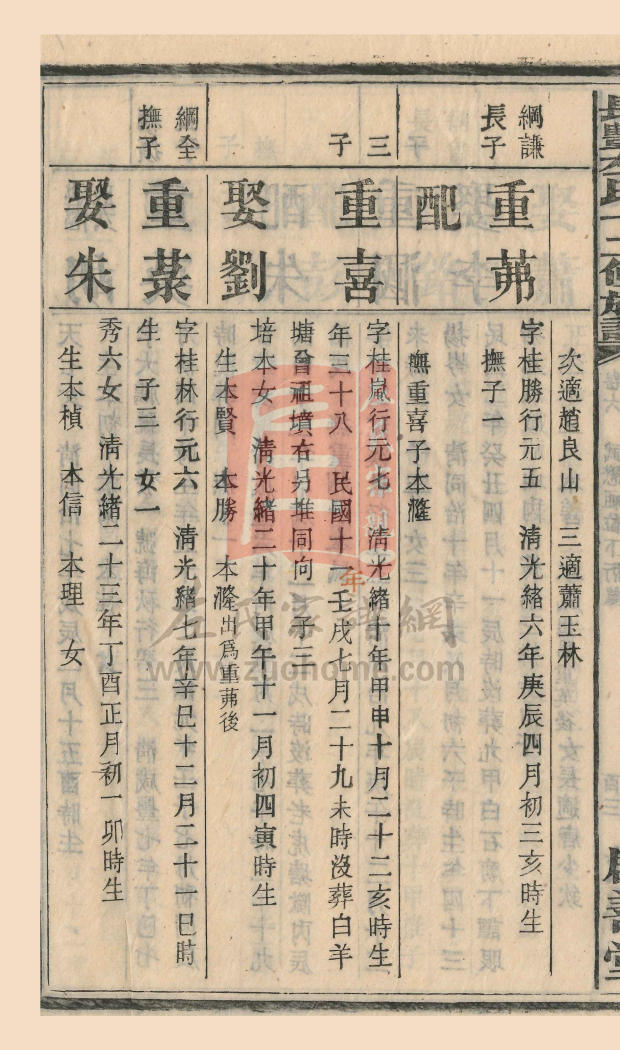 次適趙良山　三適蕭玉林
綱謙
長子
重茀
字桂勝行元五　清光緒六年庚辰四月初三亥時生
撫子一
配
無重喜子本漋
三
子
重喜
字桂嵐行元七　清光緒十年甲申十月二十二亥時生
年三十八　民國十一年壬戌七月二十九未時沒葬白羊
塘曾祖墳右另堆同向　子三
娶劉
培本女　清光緒二十年甲午十一月初四寅時生
生本賢　本勝　本漋出為重茀後
綱全
撫子
重菉
字桂林行元六　清光緒七年辛巳十二月二十一巳時
生　子三　女一
娶朱
秀六女　清光緒二十三年丁酉正月初一卯時生
生本楨　本信　本理　女
左氏家譜網
www.zuonomm.com